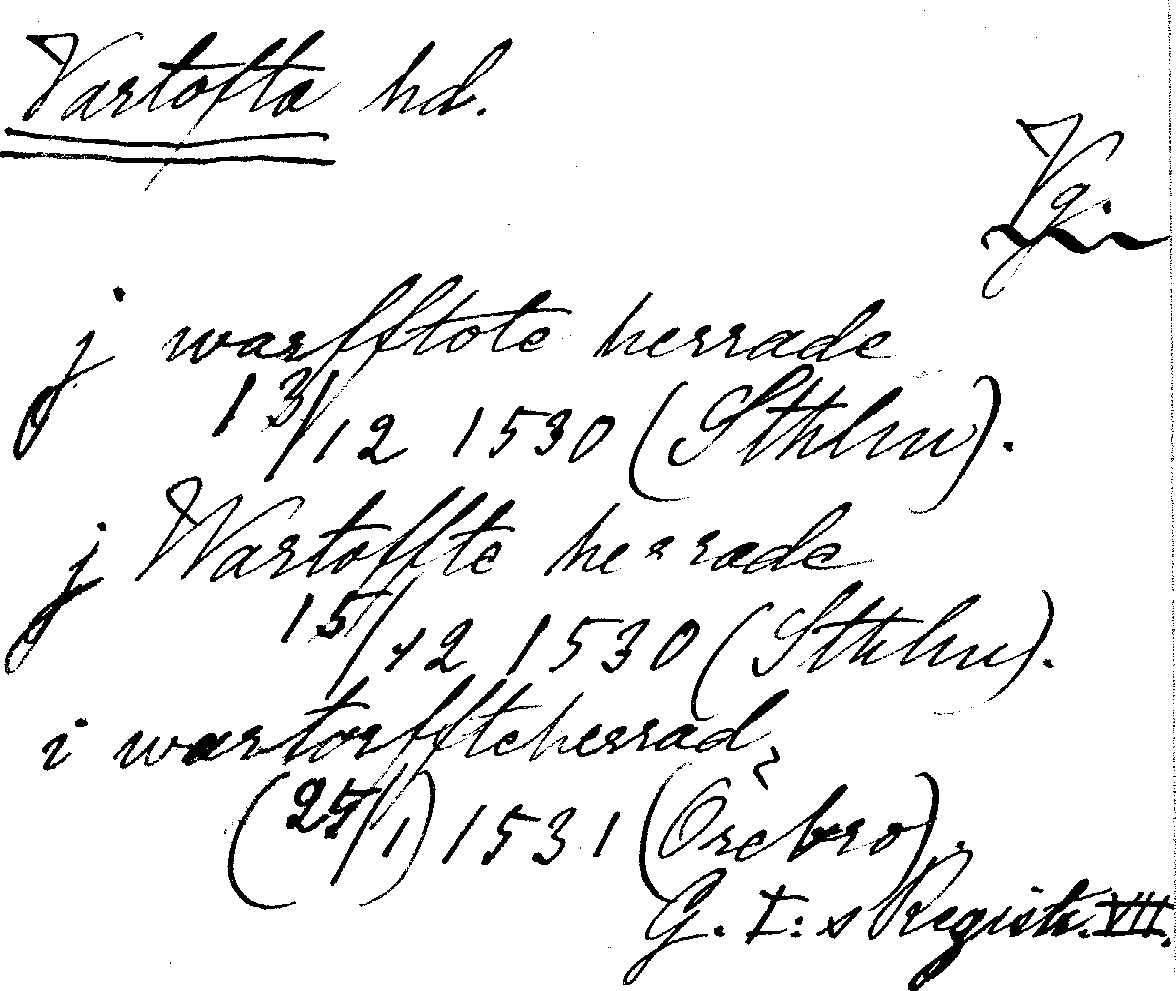 Vartofta hd.
Vg.
j warfftote herrade
13/12 1530 (Sthlm).
j Wartoffte herrade
15/12 1530 (Sthlm).
i wartorffteherrad
(25/1) 1531 (Örebro).
G. I:s Registr. VII.